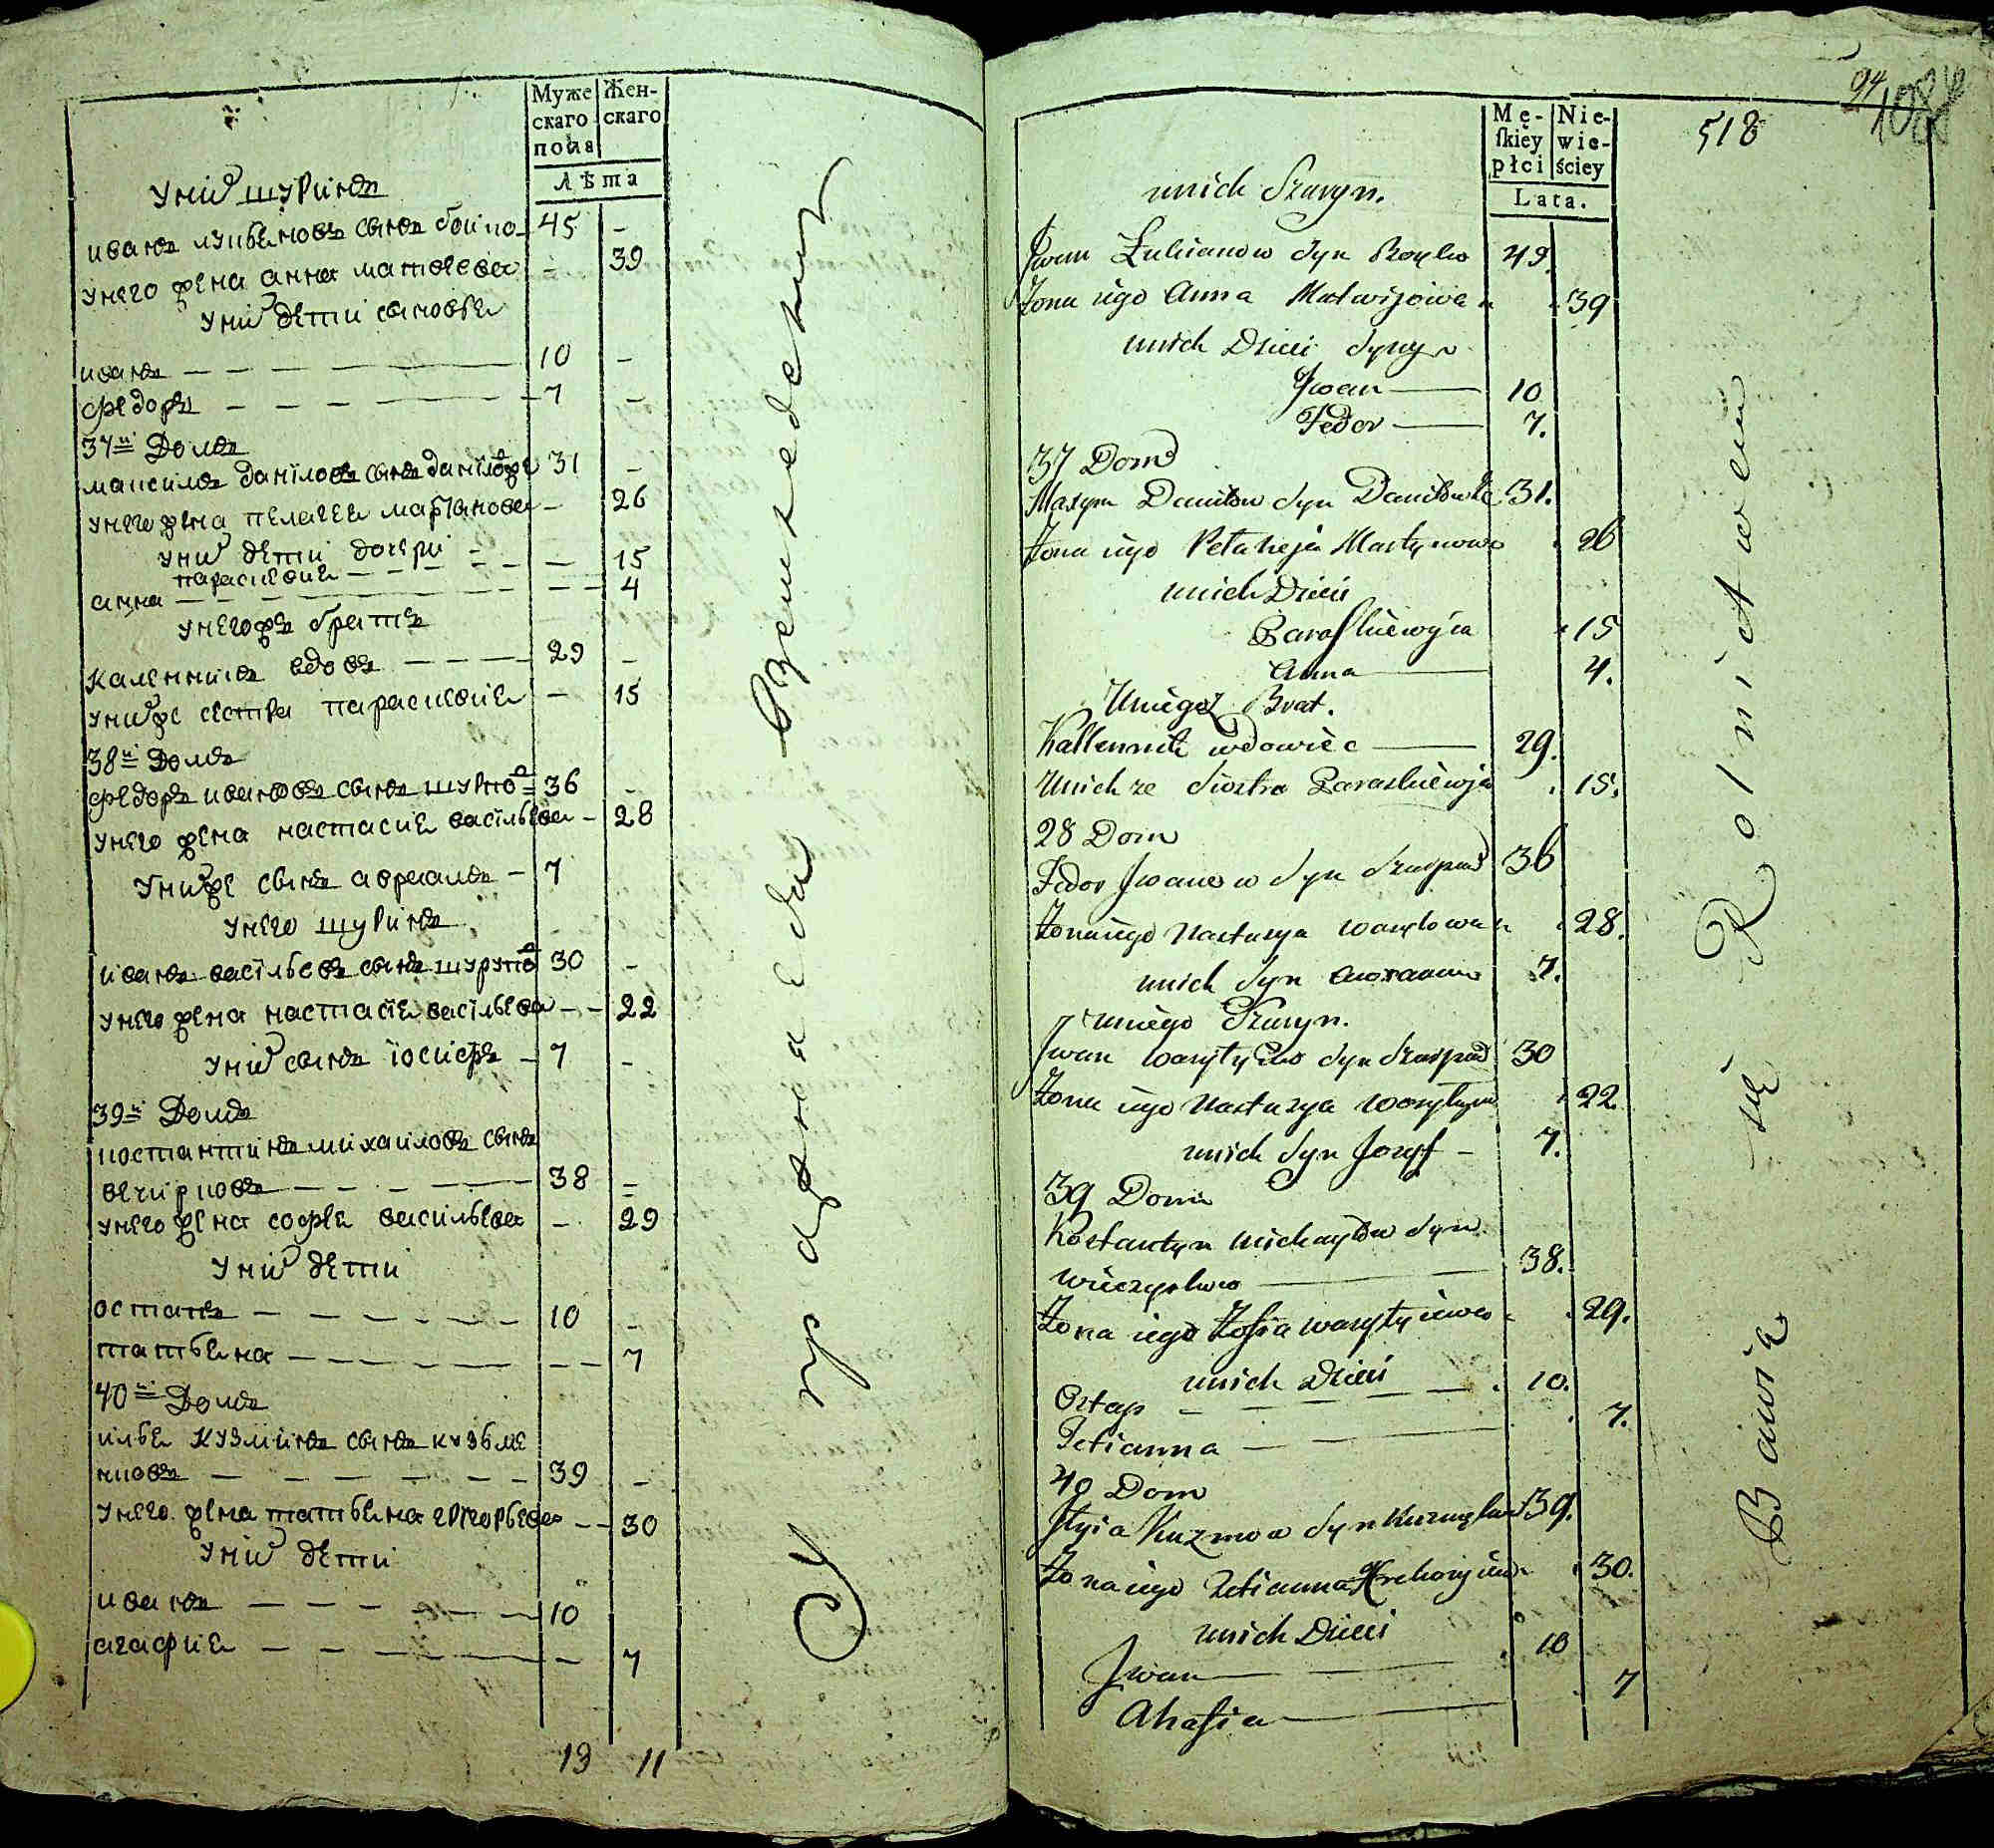 Муже
скаго
пола
Жен-
скаго
Лѣта
у них шуринъ
иванъ лукьяновъ сынъ бойко 45 -
у него жена анна матвеева - 39
у них дети сыновья
иванъ 10 -
федоръ 7 -
37й Домъ
максимъ данїловъ сынъ 31 -
у него жена пелагея мартинова - 26
у них дети дочери
парасковия - 15
анна - 4
у негожъ братъ
каленникъ вдовъ 29 -
у нихже сестра парасковия - 15
38й Домъ
федоръ ивановъ сынъ 36 -
у него жена настасия васїльева - 28
у нихже сынъ аврамъ - 7
у него шуринъ
иванъ васїльевъ сынъ 30 -
у него жена настасїя васїльева - 22
у них сынъ їосифъ - 7 -
39й Домъ
костантинъ михаиловъ сынъ
вечирковъ 38 -
у него жена софья васильева - 29
у них дети
остапъ 10 -
татьяна - 7
40й Домъ
илья кузминъ сынъ кузьме
нковъ 39 -
у него жена татьяна григорьева - 30
у них дети
иванъ 10
агафия - 7
13 11
Упражняется в земледелии
94
108
518
Mę-
ſkiey
płci
Nie-
wie-
ściey
Lata.
unich Szuryn.
Jwan Łukianow Syn Boyko 49.
Żona iego Anna Matwijowa 39
unich Dzieci Syny
Jwan 10
Fedor 7.
37 Dom
Maxym Daniłow Syn 31.
Żona iego Pelaheja Martynowa 26
unich Dzieci
Paraſkiewija 15
Anna 4.
Uniegoż Brat.
Kallennik wdowiec 29.
Unich ze Siostra Paraskiewija 15.
28 Dom
Fedor Jwanow Syn 36
Żona iego Nastazya 28.
unich Syn 7.
uniego Szuryn.
Jwan Syn 30
Żona iego Nastazya 22
unich Syn Jozyf - 7.
39 Dom
Kostantyn Michayłow Syn
Wieczyrkow 38.
Żona iego Zofia Wasyłyiewa 29.
unich Dzieci
Ostap 10.
Tetianna 7.
40 Dom
Jlyia Kuzmow Syn 39.
Żona iego Tetianna Hrehoryiewa 30.
unich Dzieci
Jwan 10
Ahafia 7
Bawią się Rolnictwem